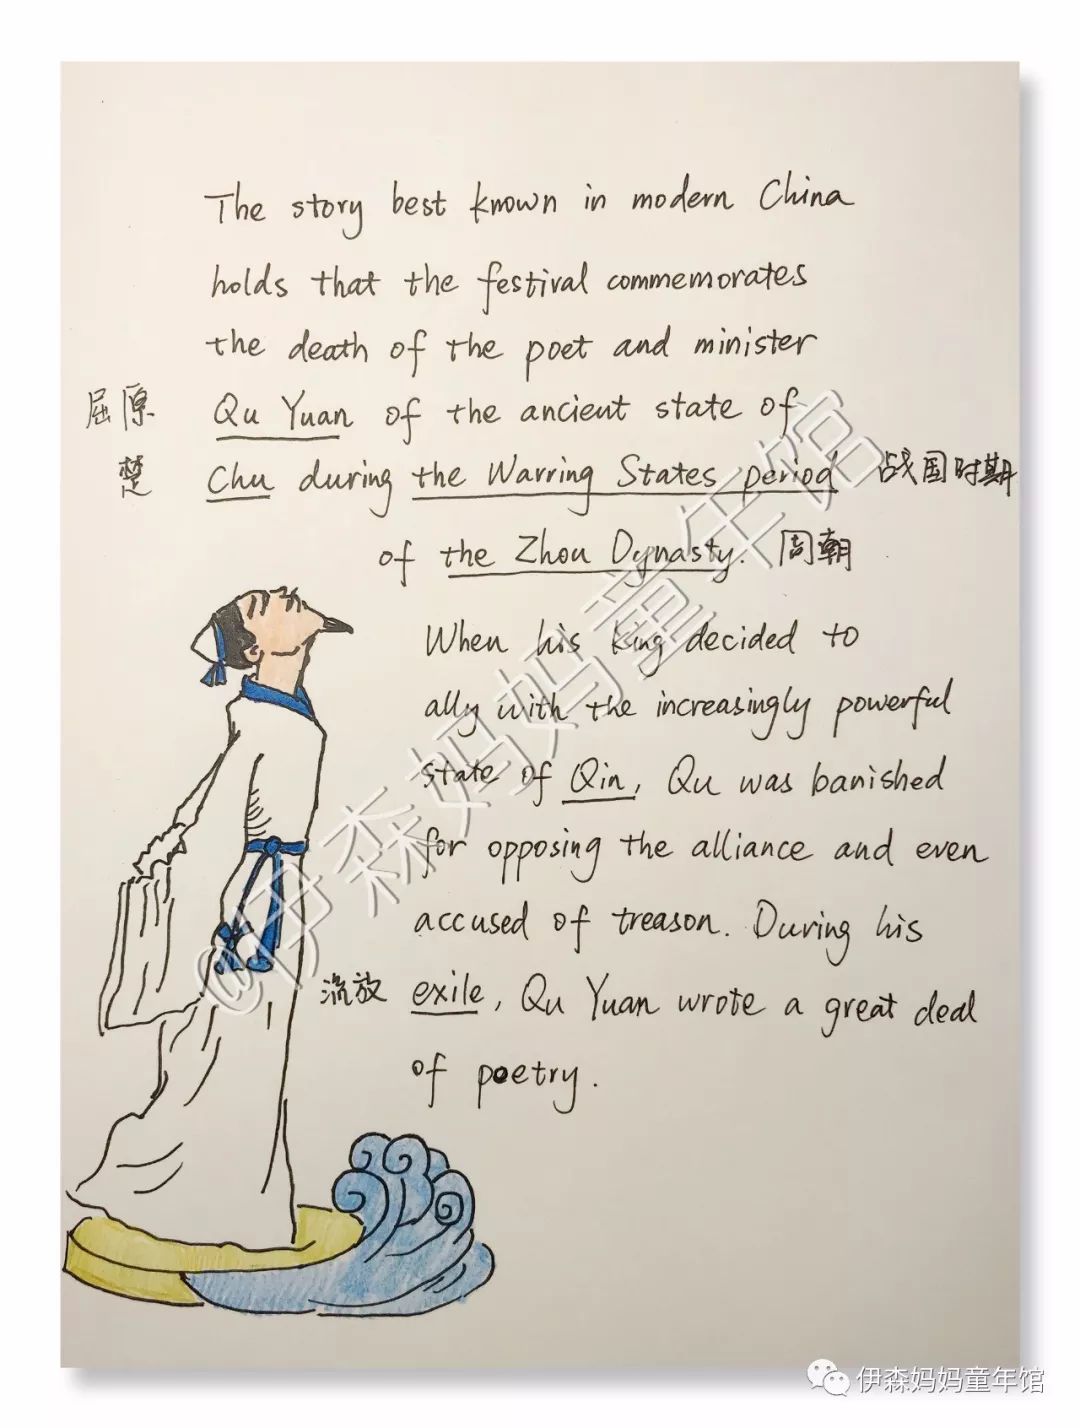 The story best known in modern China
holds that the festival commemorates
the death of the poet and minister
屈原 Qu Yuan of the ancient state of
楚 Chu during the Warring States period 战国时期
of the Zhou Dynasty. 周朝
When his king decided to
ally with the increasingly powerful
state of Qin, Qu was banished
for opposing the alliance and even
accused of treason. During his
流放 exile, Qu Yuan wrote a great deal
of poetry.
@伊森妈妈童年馆
伊森妈妈童年馆